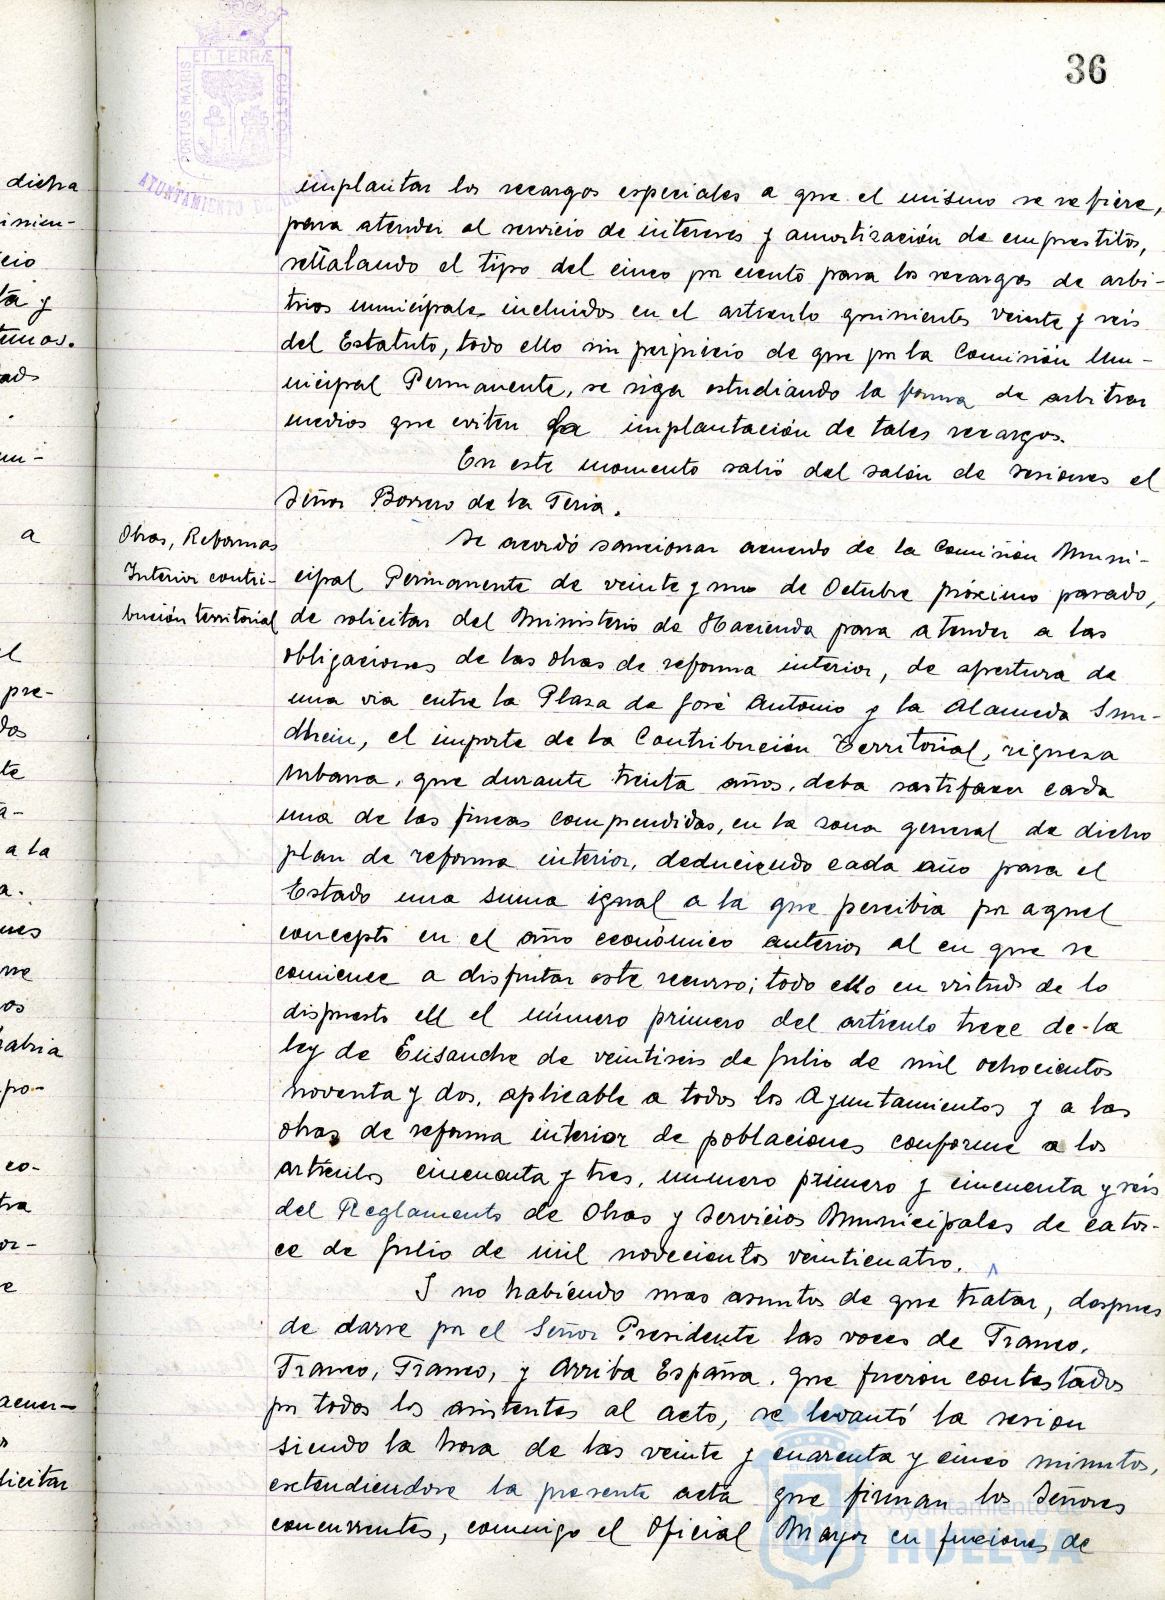 36
PORTUS MARIS ET TERRÆ CUSTO
AYUNTAMIENTO DE
dicha
cio
ta y
a
el
pre-
dos
te
a la
nes
os
habria
po-
co-
tra
or-
acuer-
licitar
implantar los recargos especiales a que el mismo se refiere,
para atender al servicio de intereses y amortización de emprestitos,
señalando el tipo del cinco por ciento para los recargos de arbi-
trios municipales incluidos en el articulo quinientos veinte y seis
del Estatuto, todo ello sin perjuicio de que por la Comisión Mu-
nicipal Permanente, se siga estudiando la forma de arbitrar
medios que eviten la implantación de tales recargos.
En este momento salió del salón de sesiones el
Señor Borrero de la Feria.
Obras, Reformas
Interior contri-
bución territorial
Se acordó sancionar acuerdo de la Comisión Muni-
cipal Permanente de veinte y uno de Octubre próximo pasado,
de solicitar del Ministerio de Hacienda para atender a las
obligaciones de las obras de reforma interior, de apertura de
una via entre la Plaza de José Antonio y la Alameda Sun-
dheim, el importe de la Contribución Territorial, riqueza
urbana, que durante treinta años, deba sartifacer cada
una de las fincas comprendidas, en la zona general de dicho
plan de reforma interior, deduciendo cada año para el
Estado una suma igual a la que percibia por aquel
concepto en el año económico anterior al en que se
comience a disfrutar este recurso; todo ello en virtud de lo
dispuesto en el número primero del articulo trece de la
ley de Ensanche de veintiseis de Julio de mil ochocientos
noventa y dos, aplicable a todos los Ayuntamientos y a las
obras de reforma interior de poblaciones conforme a los
articulos cincuenta y tres, número primero y cincuenta y seis
del Reglamento de Obras y Servicios Municipales de cator-
ce de Julio de mil novecientos veinticuatro.
I no habiendo mas asuntos de que tratar, despues
de darse por el Señor Presidente las voces de Franco,
Franco, Franco, y Arriba España, que fueron contestados
por todos los asistentes al acto, se levantó la sesion
siendo la hora de las veinte y cuarenta y cinco minutos,
extendiendose la presente acta que firman los Señores
concurrentes, conmigo el Oficial Mayor en funciones de
Ayuntamiento de
HUELVA